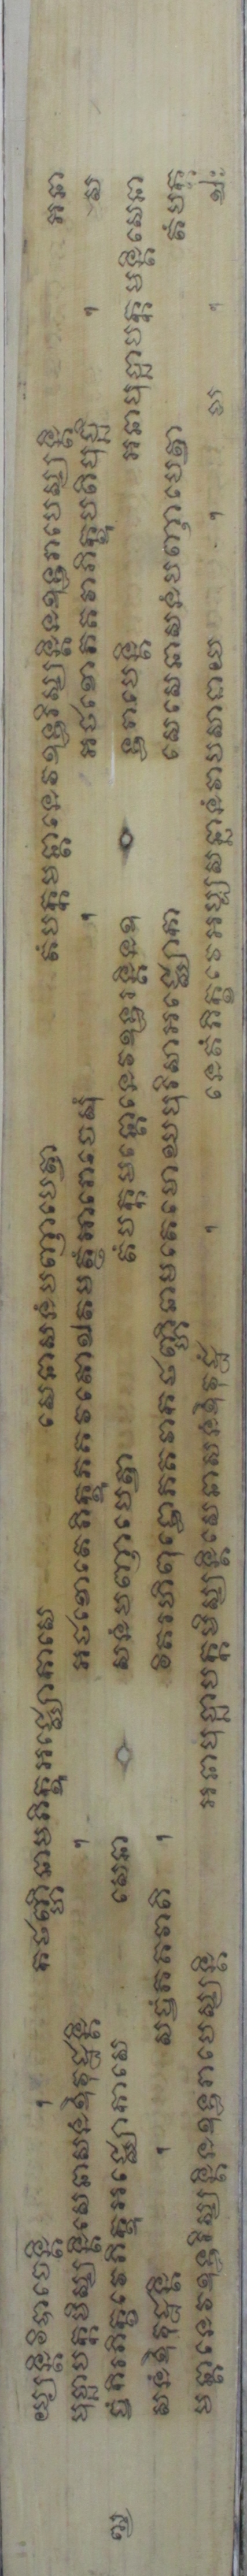 យ្យន្តិវិបាចេន្តិ ។ កថញ្ហិនាមភិក្ខូអជ្ឈោកាសេ សេនាសនំបញ្ញាបេត្វា តំបក្កមន្តានេវឧទ្ធរិស្សន្តិនឧទ្ធរាបេស្សន្តិ អនា
បុច្ឆាបក្កមិស្សន្តិសេនាសនំឱវុដ្ឋន្តិ ។ អថខោតេភិក្ខូភគវតោឯតមត្ថំអារោចេសុំ ។ អថខោភគវាភិក្ខូបតិបុច្ឆិ ។ ស
ច្ចំកិរភិក្ខវេភិក្ខូអជ្ឈោកាសេ សេនា សនំបញ្ញាបេត្វា តំបក្កមន្តោនេវឧទ្ធរន្តិនឧ ទ្ធរាបេន្តិ អនាបុច្ឆាបក្កមន្តិសេនា
សនំឱវុដ្ឋន្តិ ។ សច្ចំភគវាតិ ។ វិគរហិពុទ្ធោភគវាកថញ្ហិនាមតេមោឃបុរិសាអជ្ឈោកា សេសេនាសនំបញ្ញាបេត្វា តំបក្ក
មន្តានេវឧទ្ធរិស្សន្តិនឧទ្ធរាបេស្សន្តិ អនាបុច្ឆាបក្កមិស្សន្តិសេនាសនំឱវុដ្ឋំ ។ នេតំភិក្ខវេអប្បសន្នានំវាបសាទាយ ។ ។